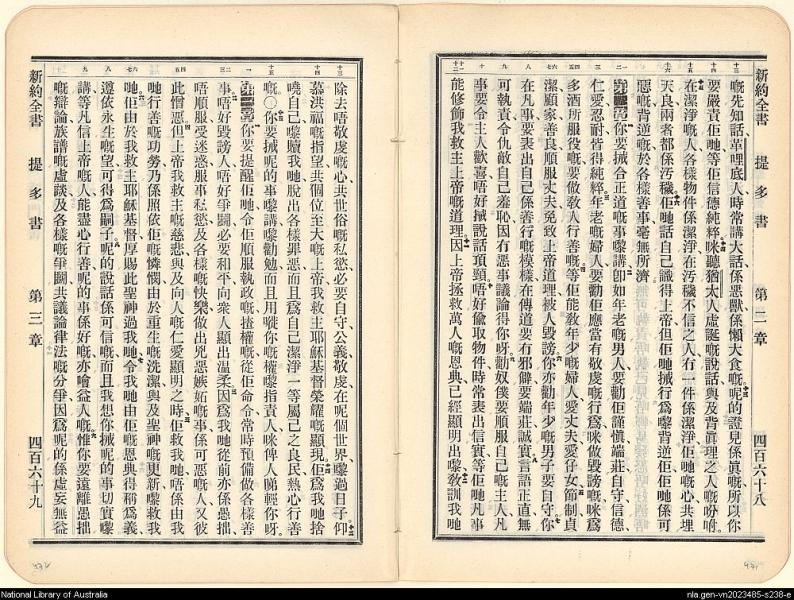 新約全書 提多書 第二章 四百六十八
嘅先知話革哩底人時常講大話係惡獸係懶大食嘅呢的證見係眞嘅所以你
要嚴責佢哋等佢信德純粹咪聽猶太人虛誕嘅說話與及背眞理之人嘅吩咐
在潔淨嘅人各樣物件係潔淨在汚穢不信之人冇一件係潔淨佢哋嘅心共埋
天良兩者都係汚穢佢哋話自己識得上帝但佢哋械行爲嚟背逆佢佢哋係可
惡嘅背逆嘅於各樣善事毫無所濟
第二章你要械合正道嘅事嚟講卽如年老嘅男人要勸佢謹愼端莊自守信德
仁愛忍耐皆得純粹年老嘅婦人要勸佢應當有敬虔嘅行爲咪做毀謗嘅咪爲
多酒所服役嘅要做敎人行善嘅等佢能敎年少嘅婦人愛丈夫愛仔女節制貞
潔顧家善良順服丈夫免致上帝道理被人毀謗你亦勸年少嘅男子要自守你
凡事要表出自己係善行嘅模樣在傳道要冇邪僻要端莊誠實言語正直無
可執責令仇敵自己羞恥因冇惡事議論得你呀勸奴僕要順服自己嘅主人凡
事要令主人歡喜唔好械說話頂頸唔好偷取物件時常表出信實等佢哋凡事
能修飾我救主上帝嘅道理因上帝拯救萬人嘅恩典已經顯明出嚟敎訓我哋
除去唔敬虔嘅心共世俗嘅私慾必要自守公義敬虔在呢個世界嚟過日子仰
慕洪福嘅指望共個位至大嘅上帝我救主耶穌基督榮耀嘅顯現佢爲我哋捨
嘵自己嚟贖我哋脫出各樣罪惡而且爲自己潔淨一等屬己之良民熱心行善
嘅○你要械呢的事嚟講嚟勸勉而且用嘥你嘅權嚟指責人咪俾人睇輕你呀
第三章你要提醒佢哋令佢順服執政嘅揸權嘅從佢命令常時預備做各樣善
事唔好毀謗人唔好爭鬬必要和平向衆人顯出溫柔因爲我哋從前亦係愚拙
唔順服受迷惑服事私慾及各樣嘅快樂做出兇惡嫉妬嘅事係可惡嘅人又彼
此憎惡但上帝我救主嘅慈悲與及向人嘅仁愛顯明之時佢救我哋唔係由我
哋行善嘅功勞乃係照依佢嘅憐憫由於重生嘅洗潔與及聖神嘅更新嚟救我
哋佢由於我救主耶穌基督厚賜此聖神過我哋令我哋由佢嘅恩典得稱爲義
遵依永生嘅望可得爲嗣子呢的說話係可信嘅而且我想你械呢的事切實嚟
講等凡信上帝嘅人能盡心行善呢的事係好嘅亦噲益人嘅惟你要遠離愚拙
嘅辯論族譜嘅虛談及各樣嘅爭鬬共議論律法嘅分爭因爲呢的係虛妄無益
新約全書 提多書 第三章 四百六十九
National Library of Australia
nla.gen-vn2023485-s238-e